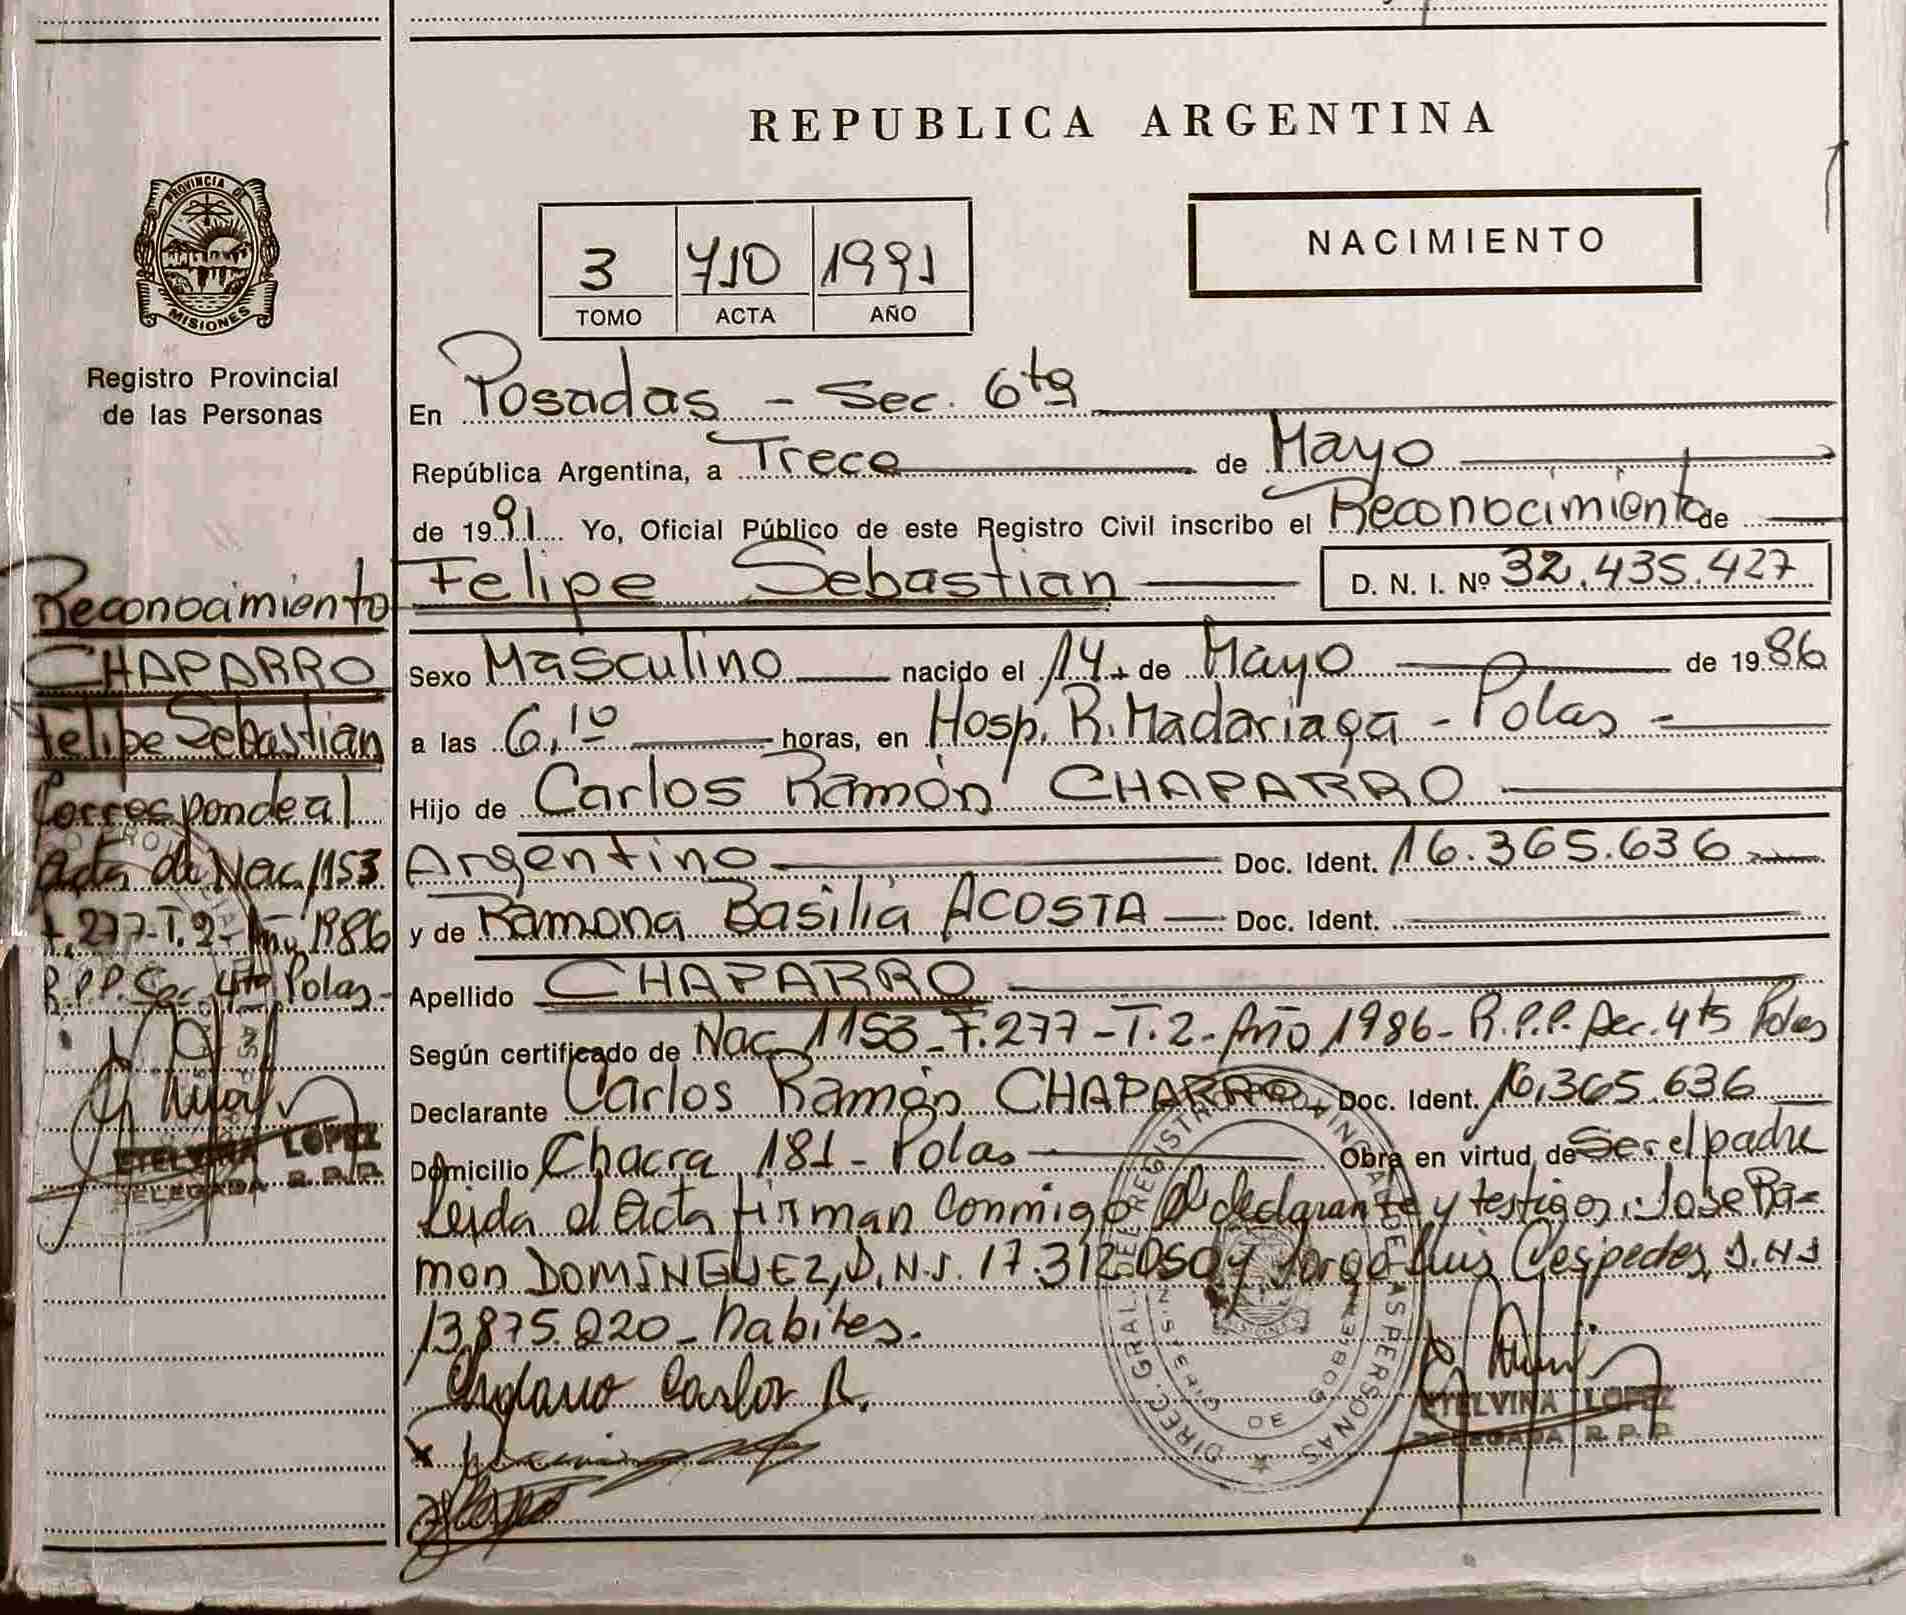 REPUBLICA ARGENTINA
NACIMIENTO
3 710 1991
TOMO ACTA AÑO
PROVINCIA DE
MISIONES
Registro Provincial
de las Personas
En Posadas - Sec. 6ta
República Argentina, a Trece de Mayo
de 1991 Yo, Oficial Público de este Registro Civil inscribo el Reconocimiento de
Felipe Sebastian D. N. I. Nº 32.435.427
Sexo Masculino nacido el 14 de Mayo de 1986
a las 6,10 horas, en Hosp. R. Madariaga - Polas -
Hijo de Carlos Ramón CHAPARRO
Argentino Doc. Ident. 16.365.636
y de Ramona Basilia ACOSTA Doc. Ident.
Apellido CHAPARRO
Según certificado de Nac 1153 - F. 277 - T. 2 - Año 1986 - R.P.P. Sec. 4ta Polas
Declarante Carlos Ramón CHAPARRO Doc. Ident. 16,365.636
Domicilio Chacra 181 - Polas Obra en virtud de Ser el padre
Leida el Acta firman conmigo el declarante y testigos: Jose Ra-
mon DOMINGUEZ, D.N.I. 17.312.050 y Jorge Luis Cespedes, D.N.I
13875.220 - habiles.
Carlos R.
ETELVINA LOPEZ
DELEGADA R. P. P.
Reconocimiento
CHAPARRO
Felipe Sebastian
Corresponde al
Acta de Nac. 1153
F. 277 - T. 2 - Año 1986
R.P.P. Sec 4ta Polas -
ETELVINA LOPEZ
DELEGADA R. P. P.